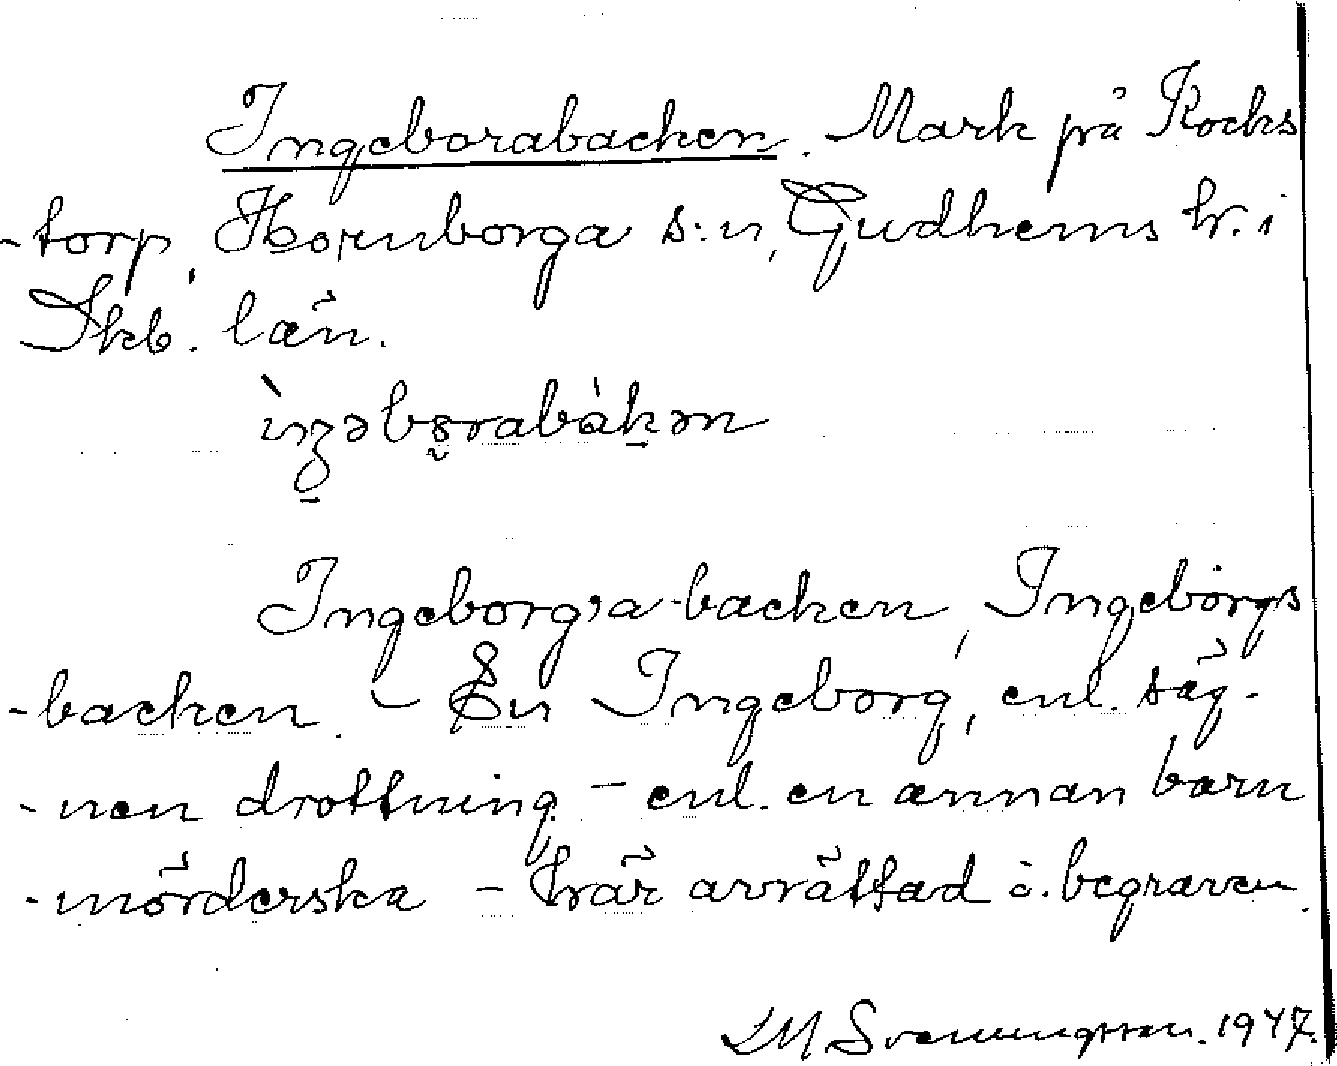 Ingeborabacken. Mark på Rocks
-torp, Hornborga s:n, Gudhems hr. i
Skb. län.
Ingeborg,a-backen, Ingeborgs
-backen. - En Ingeborg, enl. säg-
-nen drottning - enl. en annan barn
-mörderska - här avrättad o. begraven.
LM Svenungsson. 1947.